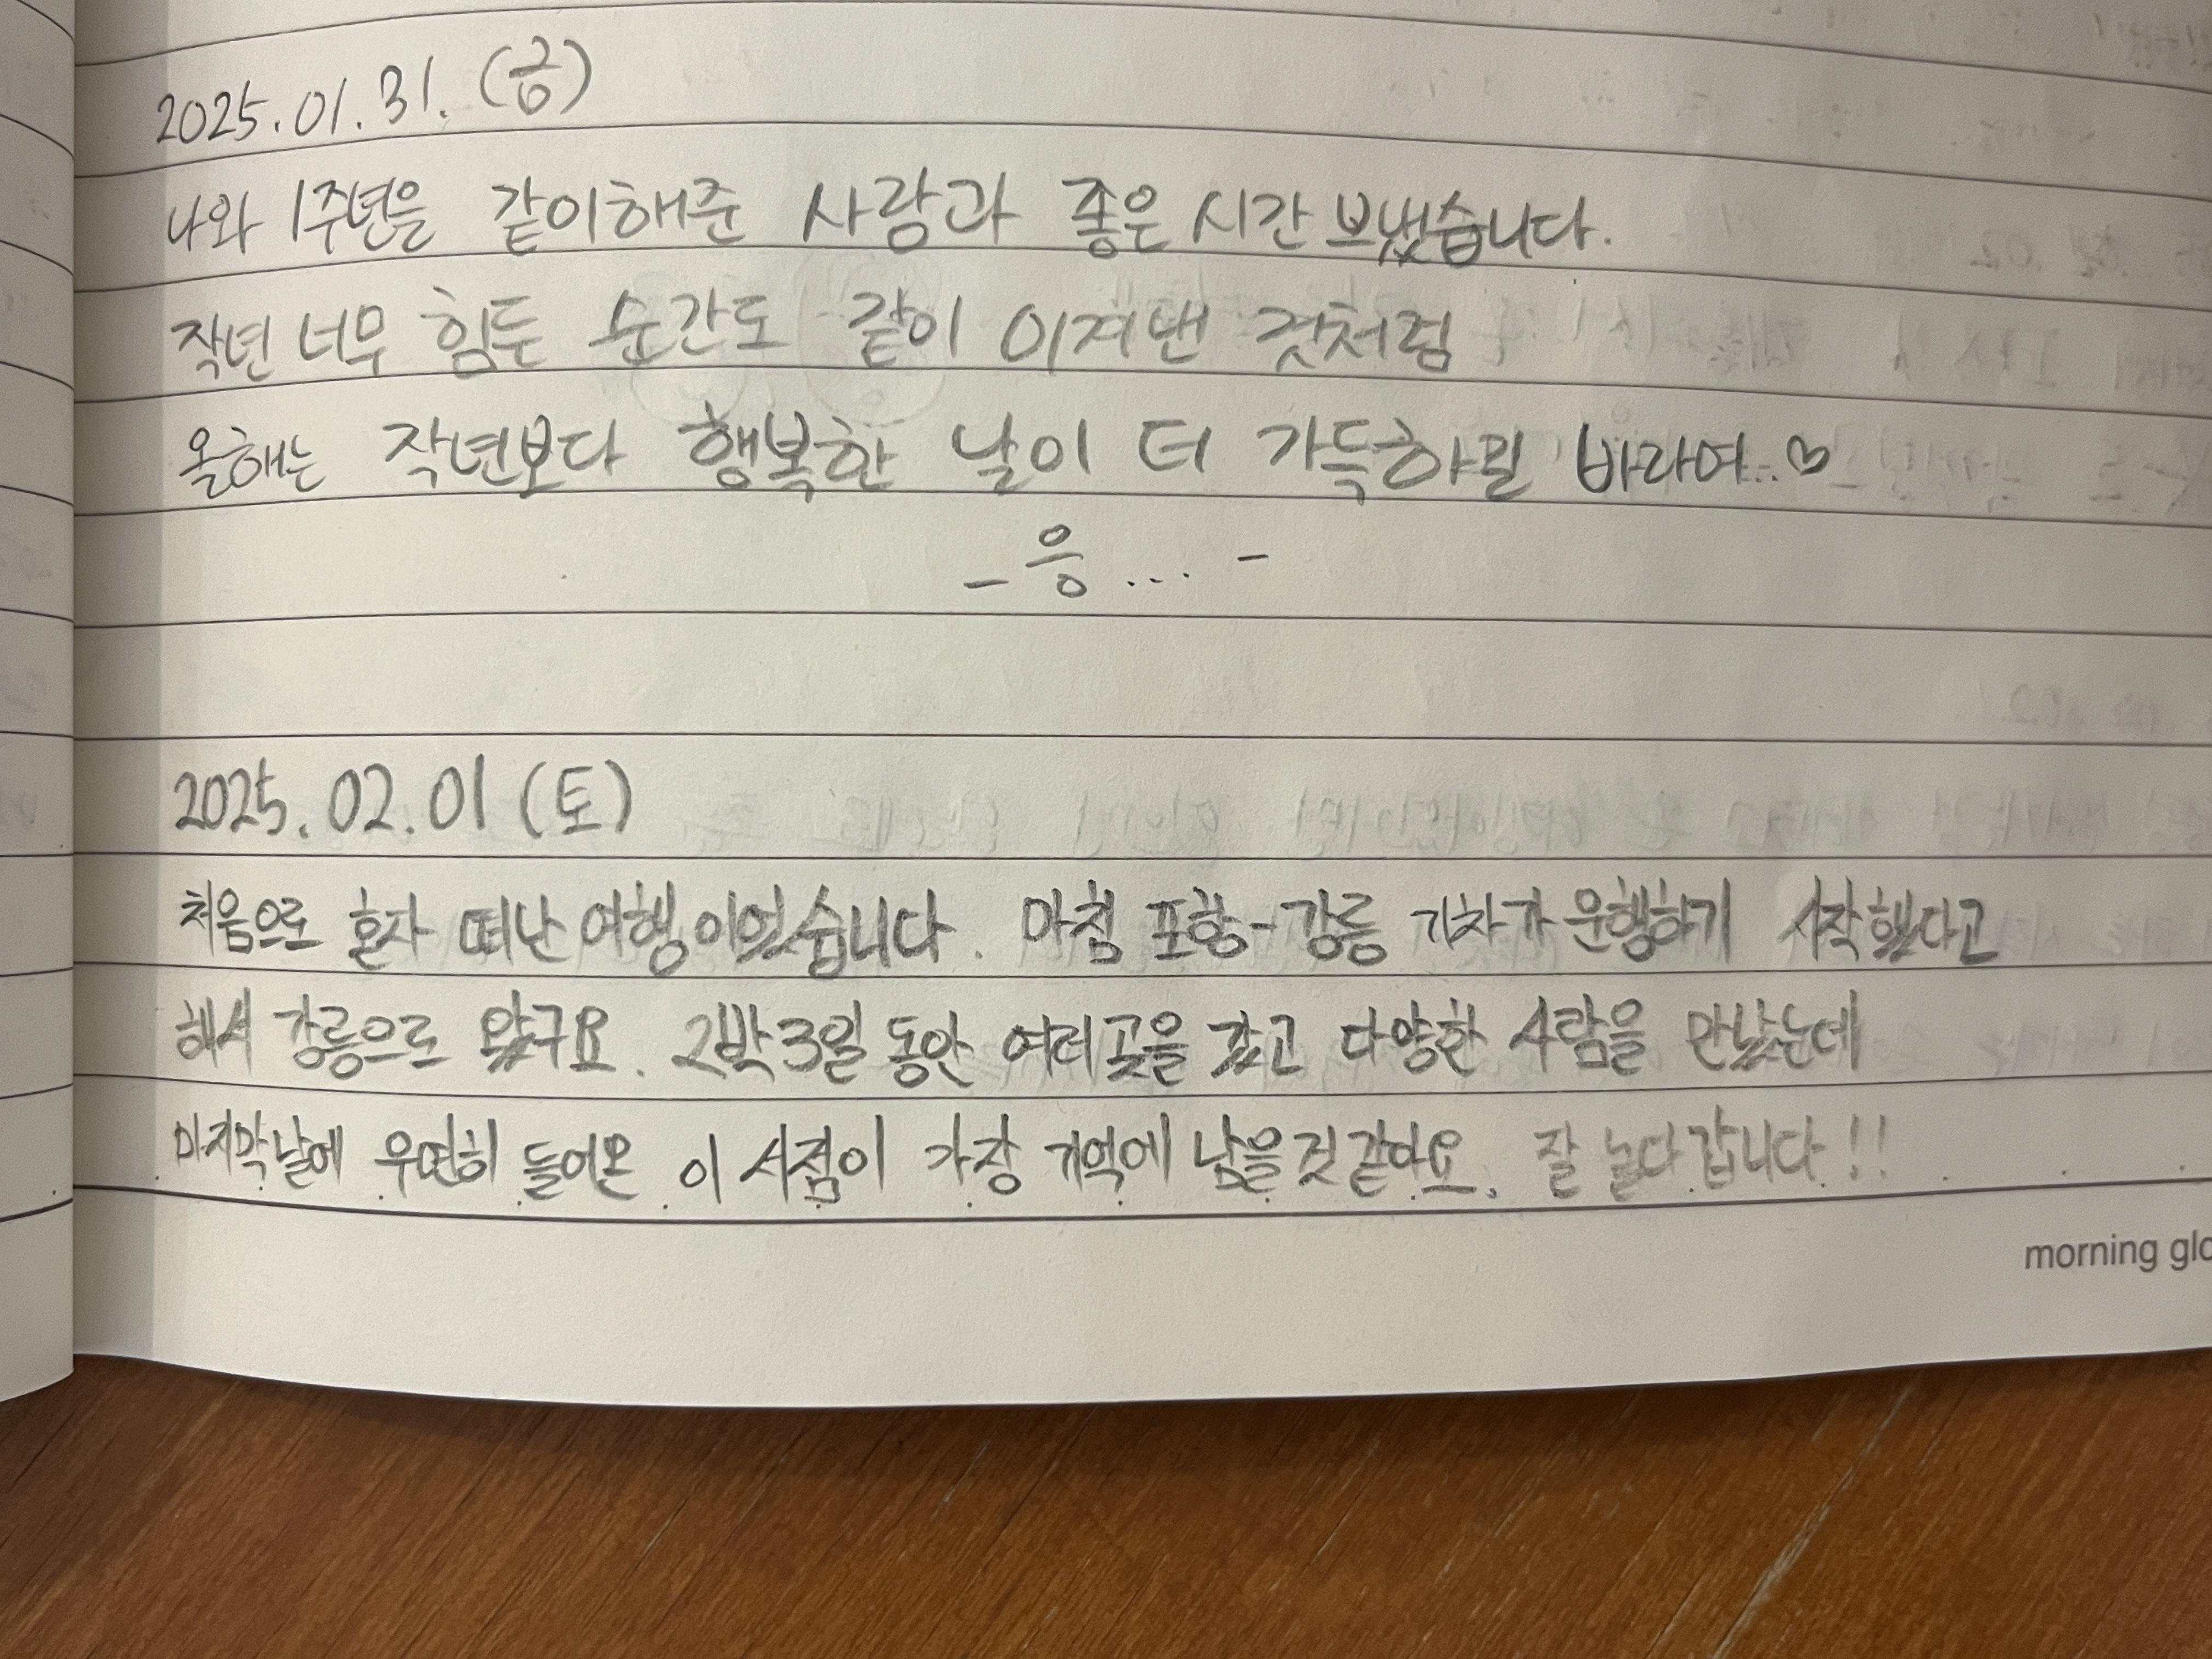 2025.01.31. (금)
나와 1주년을 같이해준 사람과 좋은 시간 보냈습니다.
작년 너무 힘든 순간도 같이 이겨낸 것처럼
올해는 작년보다 행복한 날이 더 가득하길 바라며..♡
- 응... -
2025.02.01 (토)
처음으로 혼자 떠난 여행이었습니다. 마침 포항-강릉 기차가 운행하기 시작했다고
해서 강릉으로 왔구요. 2박3일 동안 여러곳을 갔고 다양한 사람을 만났는데
마지막날에 우연히 들어온 이 서점이 가장 기억에 남을것 같아요. 잘 놀다 갑니다!!
morning glo